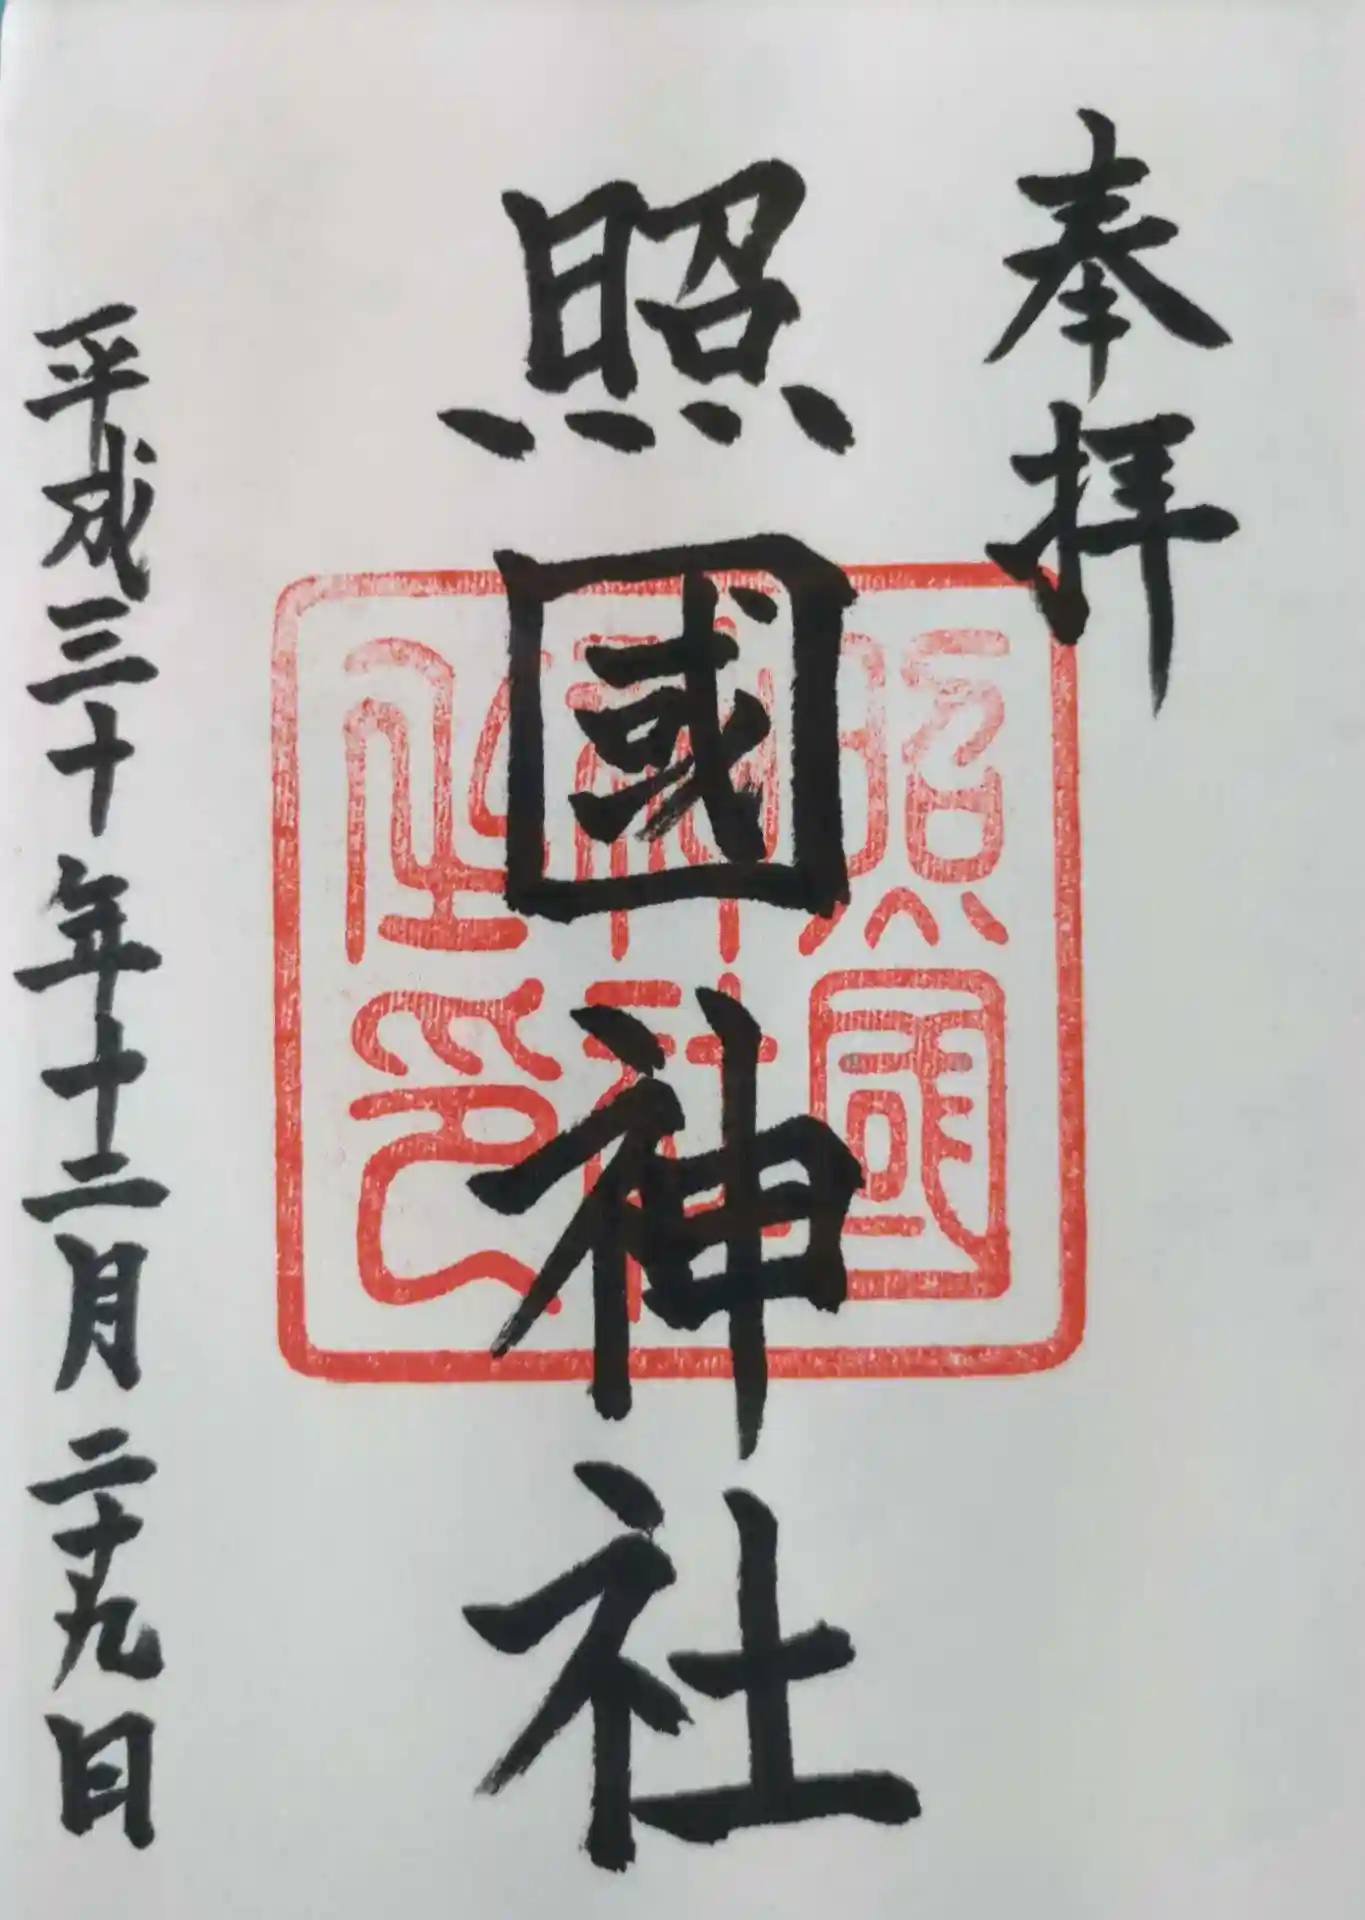 奉拝
照國神社
照國神社之印
平成三十年十二月二十九日